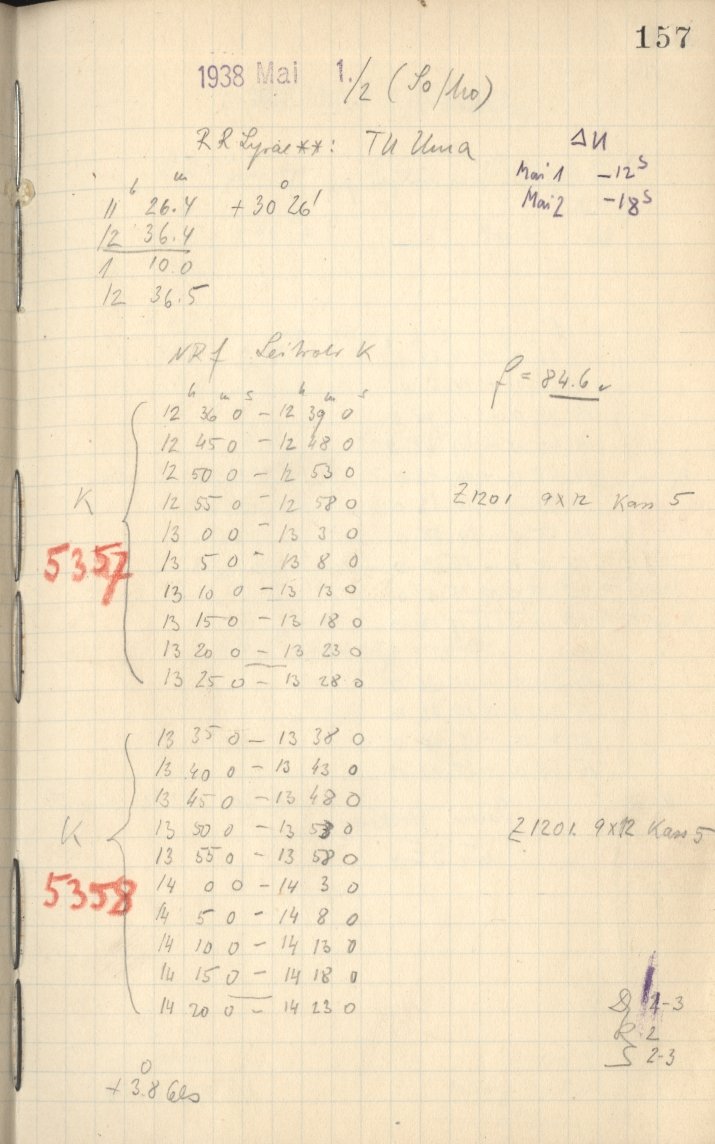 157
1938 Mai 1./2 (So/Mo)
RR Lyrae **: TU Uma
ΔU
Mai 1 -12ˢ
Mai 2 -18ˢ
11ʰ 26.4ᵐ +30°26'
12 36.4
1 10.0
12 36.5
K
f = 84.6
h m s h m s
12 36 0 - 12 39 0
12 45 0 - 12 48 0
12 50 0 - 12 53 0
12 55 0 - 12 58 0
K
Z1201 9x12 Kass 5
13 0 0 - 13 3 0
13 5 0 - 13 8 0
5357
13 10 0 - 13 13 0
13 15 0 - 13 18 0
13 20 0 - 13 23 0
13 25 0 - 13 28 0
13 35 0 - 13 38 0
13 40 0 - 13 43 0
13 45 0 - 13 48 0
13 50 0 - 13 53 0
K
Z1201. 9x12 Kass 5
13 55 0 - 13 58 0
14 0 0 - 14 3 0
5358
14 5 0 - 14 8 0
14 10 0 - 14 13 0
14 15 0 - 14 18 0
14 20 0 - 14 23 0
R 2
S 2-3
+3.8°